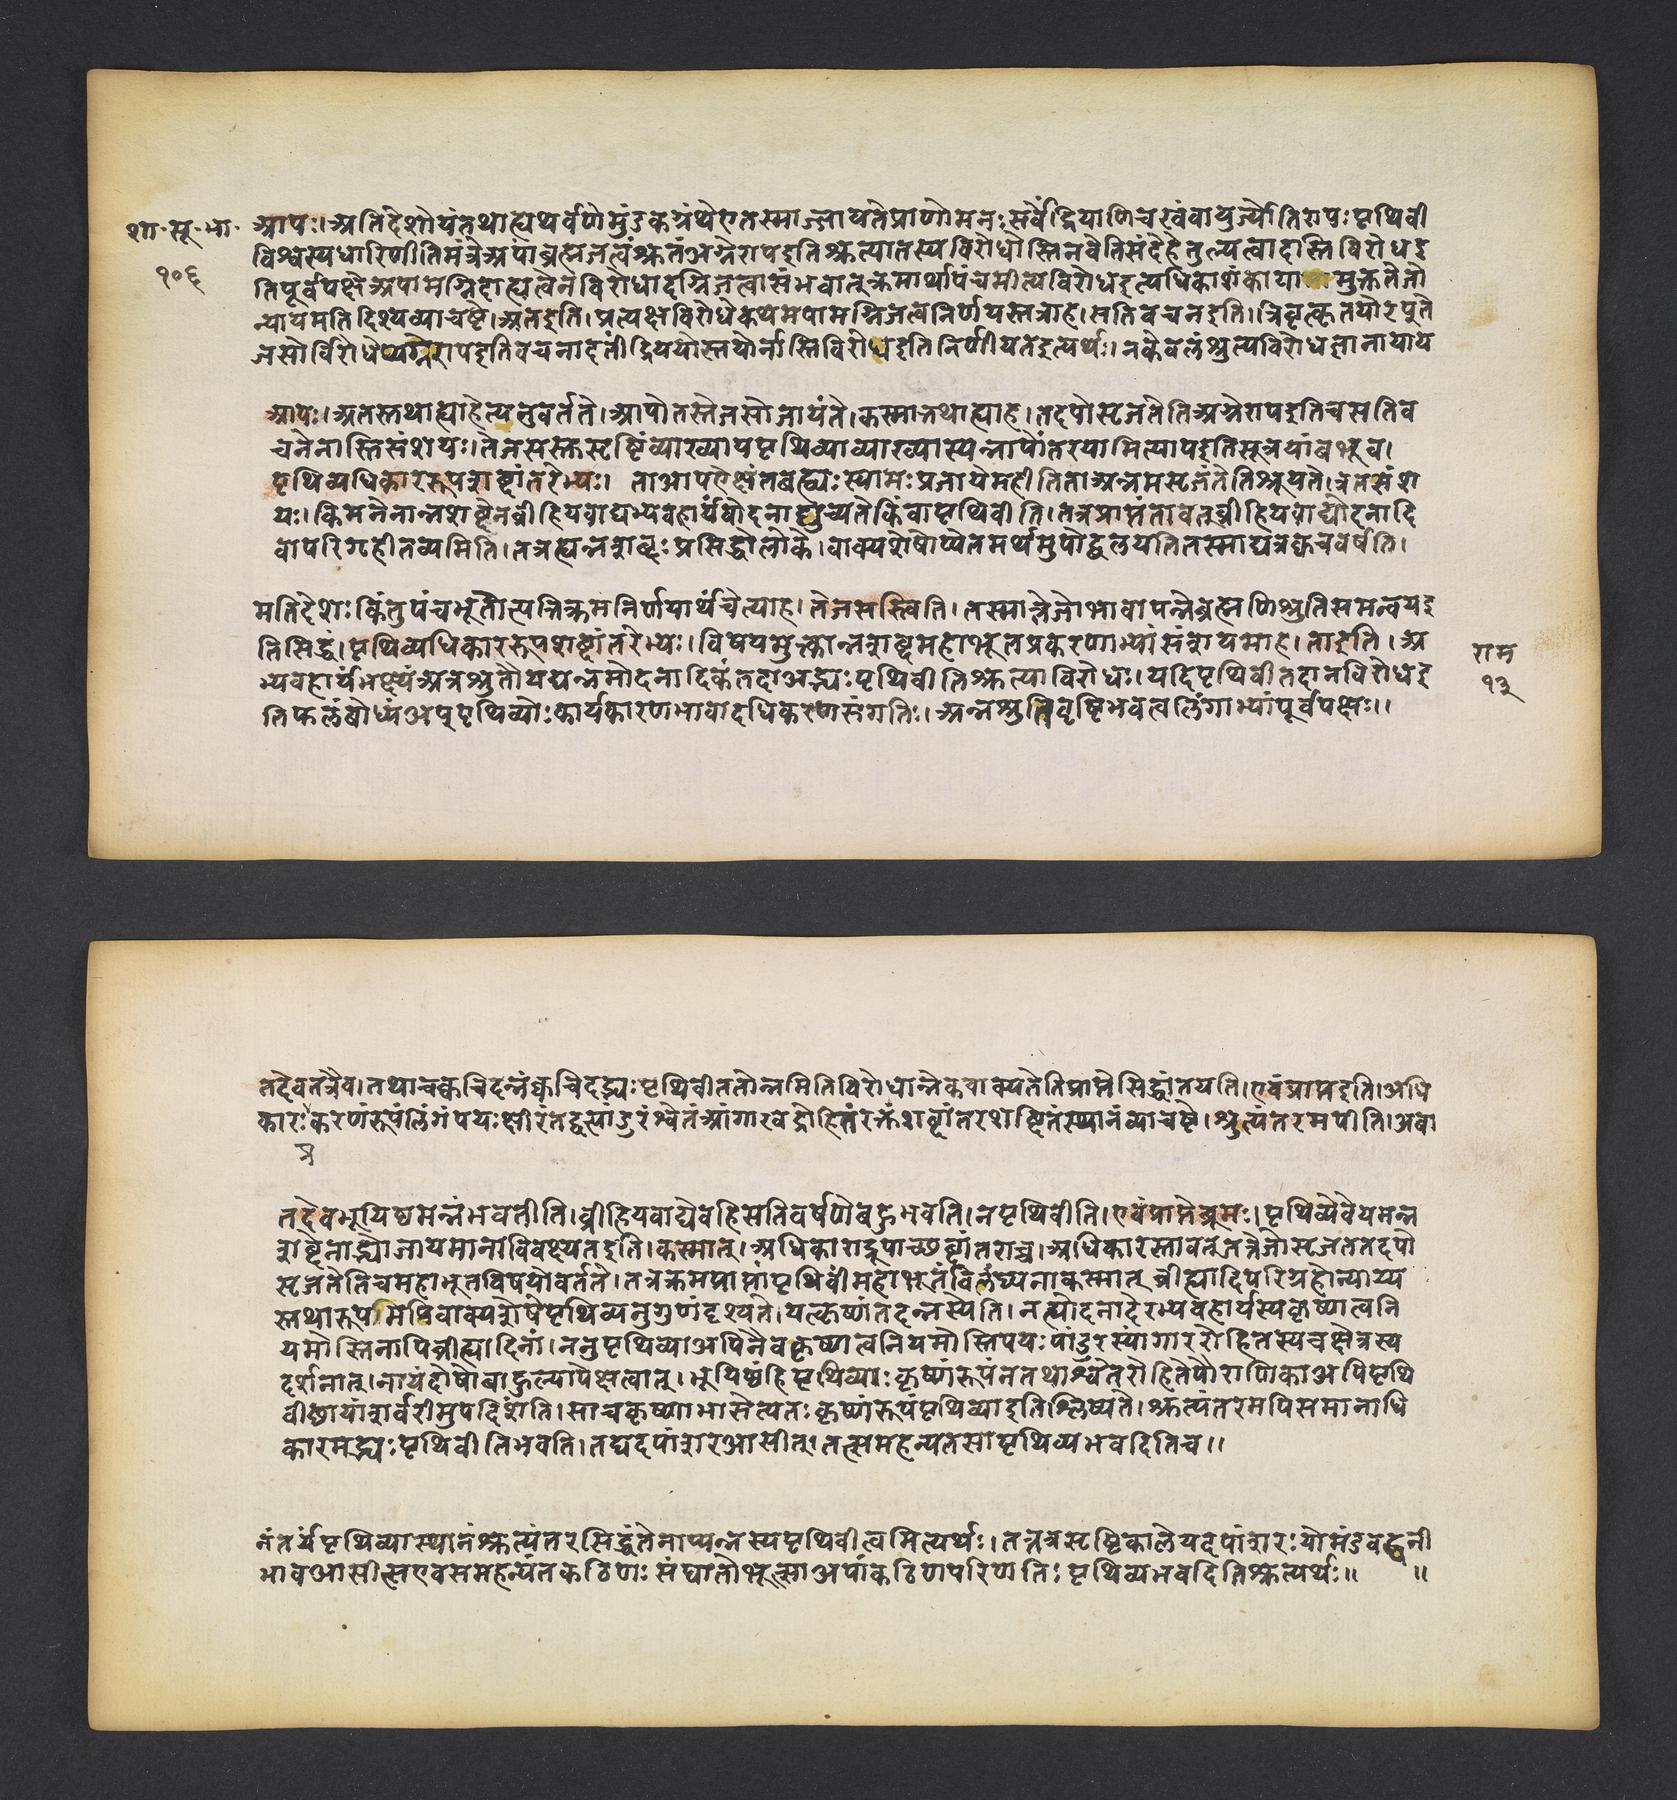 शा॰ सू॰ भा॰
१०६
आपः।अतिदेशोयंतथाह्यथर्वणेमुंडकग्रंथेएतस्माज्जायतेप्राणोमनःसर्वेंद्रियाणिचखंवायुर्ज्योतिरापःपृथिवी
विश्वस्यधारिणीतिमंत्रेअपांब्रह्मजत्वंश्रुतंअग्नेरापइतिश्रुत्यातस्यविरोधोस्तिनवेतिसंदेहेतुल्यत्वादास्तिविरोधइ
तिपूर्वपक्षेअपामग्निदाह्यत्वेनविरोधादग्निजत्वासंभवात्नुक्रमार्थापंचमीत्यविरोधइत्यधिकाशंकाया मुक्ततेजो
न्यायमतिदिश्यव्याचष्टे।अतइति।प्रत्यक्षविरोधेकथमपामग्निजत्वनिर्णयस्तत्राह।सतिवचनइति।त्रिवृत्कृतयोरप्ते
जसोर्विरोधेप्यग्नेरापइतिवचनादतींद्रिययोस्तयोर्नास्तिविरोधइतिनिर्णीयतेइत्यर्थः।नकेवलंश्रुत्यविरोधज्ञानायाय
आपः।अतस्तथाह्याहेत्यनुवर्तते।आपोतस्तेजसोजायंते।कस्मात्तथाह्याह।तदपोसृजतेतिअग्नेरापइतिचसतिव
चनेनास्तिसंशयः।तेजसस्तुसृष्टिंव्याख्यायपृथिव्याव्याख्यास्यन्नापोंतरयामित्यापइतिसूत्रयांबभूव।
पृथिव्यधिकाररूपशब्दांतरेभ्यः। ताआपऐक्षंतबह्व्यःस्यामःप्रजायेमहीतिताअन्नमसृजंतेतिश्रूयते।त्रतसंश
यः।किमनेनान्नशब्देनव्रीहियवाद्यभ्यवहार्यंवोदनाद्युच्यतेकिंवापृथिवीति।तत्रप्राप्तंतावत्व्रीहियवाद्योदनादि
वापरिगृहीतव्यमिति।तत्रह्यन्नशब्दःप्रसिद्धोलोके।वाक्यशेषोप्येतमर्थमुपोद्बलयतितस्माद्यत्रक्वचवर्षति।
मतिदेशःकिंतुपंचभूतोत्पत्तिक्रमनिर्णयार्थंचेत्याह।तेजसस्त्विति।तस्मात्तेजोभावापन्नेब्रह्मणिश्रुतिसमन्वयइ
तिसिद्धं।पृथिव्यधिकाररूपशब्दांतरेभ्यः।विषयमुक्त्वान्नशब्दमहाभूतप्रकरणाभ्यांसंशयमाह।ताइति।अ
भ्यवहार्यंभक्ष्यंअत्रश्रुतौयद्यन्नमोदनादिकंतदाअद्भ्यःपृथिवीतिश्रुत्याविरोधः।यदिपृथिवीतदानविरोधइ
तिफलंबोध्यंअप्पृथिव्योःकार्यकारणभावादधिकरणसंगतिः।अन्नश्रुतिवृष्टिभवत्वलिंगाभ्यांपूर्वपक्षः।।
राम
१३
तदेवतत्रैव।तथाचक्वचिदन्नंक्वचिदद्भ्यःपृथिवीततोन्नमितिविरोधान्नैकवाक्यतेतिप्राप्तेसिद्धांतयति।एवंप्राप्तइति।अधि
कारःकरणंरूपंलिंगंपयःक्षीरंतद्वत्पांडुरंश्वेतंआंगारवद्रोहितंरक्तंशब्दांतरशब्दितंस्थानंव्याचष्टे।श्रुत्यंतरमपीति।अबा
प्र
तदेवभूयिष्ठमन्नंभवतीति।व्रीहियवाद्येवहिसतिवर्षणेबहुभवति।नपृथिवीति।एवंप्राप्तेब्रूमः।पृथिव्येवेयमन्न
शब्देनाद्भ्योजायमानाविवक्ष्यतइति।कस्मात्।अधिकाराद्रूपाच्छब्दांतराच्च।अधिकारस्तावत्तत्तेजोसृजततदपो
सृजतेतिचमहाभूतविषयोवर्तते।तत्रक्रमप्राप्तांपृथिवींमहाभूतंविलंघ्यनाकस्मात्व्रीह्यादिपरिग्रहोन्याय्य
स्तथारूपमपिवाक्यशेषेपृथिव्यनुगुणंदृश्यते।यत्कृष्णंतदन्नस्येति।नत्वोदनादेरभ्यवहार्यस्यकृष्णत्वनि
यमोस्तिनापिव्रीह्यादिनां।ननुपृथिव्याअपिनैवकृष्णत्वनियमोस्तिपयःपांडुरस्यांगाररोहितस्यचक्षेत्रस्य
दर्शनात्।नायंदोषोबाहुल्यापेक्षत्वात्।भूयिष्ठंहिपृथिव्याःकृष्णंरूपंनतथाश्वेतरोहितेपौराणिकाअपिपृथि
वीछायांशर्वरीमुपदिशंति।साचकृष्णाभासेत्यतःकृष्णंरूपंपृथिव्याइतिश्लिष्यते।श्रुत्यंतरमपिसमानाधि
कारमद्भ्यःपृथिवीतिभवति।तद्यदपांशरआसीत्।तत्समहन्यतसापृथिव्यभवदितिच।।
नंतर्यंपृथिव्यास्थानंश्रुत्यंतरसिद्धंतेनाप्यन्नस्यपृथिवीत्वमित्यर्थः।तत्रसृष्टिकालेयदपांशरःयोमंडवद्घनी
भावआसीत्सएवसमहन्यंतकठिणःसंघातोभूत्साअपांकठिणपरिणतिःपृथिव्यभवदितिश्रुत्यर्थः॥ ॥